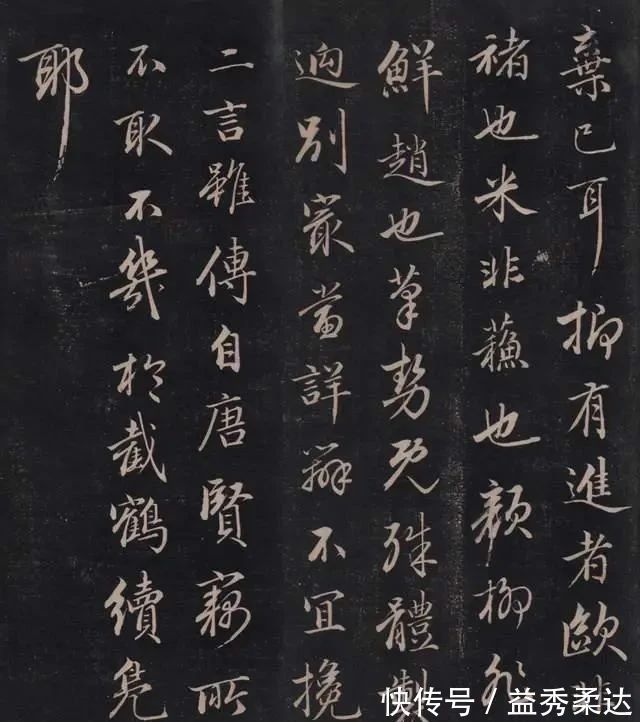 棄已耳抑有進者歐非
褚也米非蘇也顏柳
鮮趙也筆勢既殊體製
迥別最當詳辨不宜攙
二言雖傳自唐賢竊所
不取不幾於截鶴續鳧
耶
快传号／益秀柔达